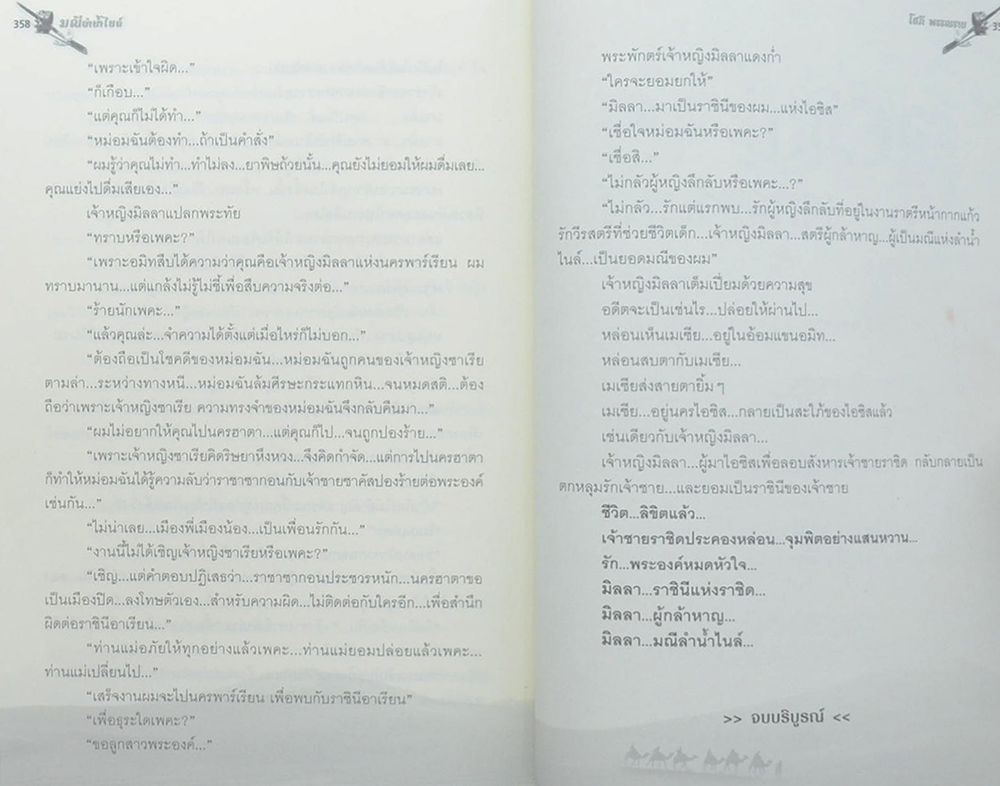 358 มณีลำน้ำไนล์
“เพราะเข้าใจผิด...”
“ก็เกือบ...”
“แต่คุณก็ไม่ได้ทำ...”
“หม่อมฉันต้องทำ...ถ้าเป็นคำสั่ง”
“ผมรู้ว่าคุณไม่ทำ...ทำไม่ลง...ยาพิษถ้วยนั้น...คุณยังไม่ยอมให้ผมดื่มเลย...
คุณแย่งไปดื่มเสียเอง...”
เจ้าหญิงมิลลาแปลกพระทัย
“ทราบหรือเพคะ?”
“เพราะอมิทสืบได้ความว่าคุณคือเจ้าหญิงมิลลาแห่งนครพาร์เรียน ผม
ทราบมานาน...แต่แกล้งไม่รู้ไม่ชี้เพื่อสืบความจริงต่อ...”
“ร้ายนักเพคะ...”
“แล้วคุณล่ะ...จำความได้ตั้งแต่เมื่อไหร่ก็ไม่บอก...”
“ต้องถือเป็นโชคดีของหม่อมฉัน...หม่อมฉันถูกคนของเจ้าหญิงซาเรีย
ตามล่า...ระหว่างทางหนี...หม่อมฉันล้มศีรษะกระแทกหิน...จนหมดสติ...ต้อง
ถือว่าเพราะเจ้าหญิงซาเรีย ความทรงจำของหม่อมฉันจึงกลับคืนมา...”
“ผมไม่อยากให้คุณไปนครฮาตา...แต่คุณก็ไป...จนถูกปองร้าย...”
“เพราะเจ้าหญิงซาเรียคิดริษยาหึงหวง...จึงคิดกำจัด...แต่การไปนครฮาตา
ก็ทำให้หม่อมฉันได้รู้ความลับว่าราชาซากอนกับเจ้าชายซาคัสปองร้ายต่อพระองค์
เช่นกัน...”
“ไม่น่าเลย...เมืองพี่เมืองน้อง...เป็นเพื่อนรักกัน...”
“งานนี้ไม่ได้เชิญเจ้าหญิงซาเรียหรือเพคะ?”
“เชิญ...แต่คำตอบปฏิเสธว่า...ราชาซากอนประชวรหนัก...นครฮาตาขอ
เป็นเมืองปิด...ลงโทษตัวเอง...สำหรับความผิด...ไม่ติดต่อกับใครอีก...เพื่อสำนึก
ผิดต่อราชินีอาเรียน...”
“ท่านแม่อภัยให้ทุกอย่างแล้วเพคะ...ท่านแม่ยอมปล่อยแล้วเพคะ...
ท่านแม่เปลี่ยนไป...”
“เสร็จงานผมจะไปนครพาร์เรียน เพื่อพบกับราชินีอาเรียน”
“เพื่อธุระใดเพคะ?”
“ขอลูกสาวพระองค์...”
โสภี พรรณราย
พระพักตร์เจ้าหญิงมิลลาแดงก่ำ
“ใครจะยอมยกให้”
“มิลลา...มาเป็นราชินีของผม...แห่งไอซิส”
“เชื่อใจหม่อมฉันหรือเพคะ?”
“เชื่อสิ...”
“ไม่กลัวผู้หญิงลึกลับหรือเพคะ...?”
“ไม่กลัว...รักแต่แรกพบ...รักผู้หญิงลึกลับที่อยู่ในงานราตรีหน้ากากแก้ว
รักวีรสตรีที่ช่วยชีวิตเด็ก...เจ้าหญิงมิลลา...สตรีผู้กล้าหาญ...ผู้เป็นมณีแห่งลำน้ำ
ไนล์...เป็นยอดมณีของผม”
เจ้าหญิงมิลลาเต็มเปี่ยมด้วยความสุข
อดีตจะเป็นเช่นไร...ปล่อยให้ผ่านไป...
หล่อนเห็นเมเซีย...อยู่ในอ้อมแขนอมิท...
หล่อนสบตากับเมเซีย...
เมเซียส่งสายตายิ้มๆ
เมเซีย...อยู่นครไอซิส...กลายเป็นสะใภ้ของไอซิสแล้ว
เช่นเดียวกับเจ้าหญิงมิลลา...
เจ้าหญิงมิลลา...ผู้มาไอซิสเพื่อลอบสังหารเจ้าชายราชิด กลับกลายเป็น
ตกหลุมรักเจ้าชาย...และยอมเป็นราชินีของเจ้าชาย
ชีวิต...ลิขิตแล้ว...
เจ้าชายราชิดประคองหล่อน...จุมพิตอย่างแสนหวาน...
รัก...พระองค์หมดหัวใจ...
มิลลา...ราชินีแห่งราชิด...
มิลลา...ผู้กล้าหาญ...
มิลลา...มณีลำน้ำไนล์...
>> จบบริบูรณ์ <<